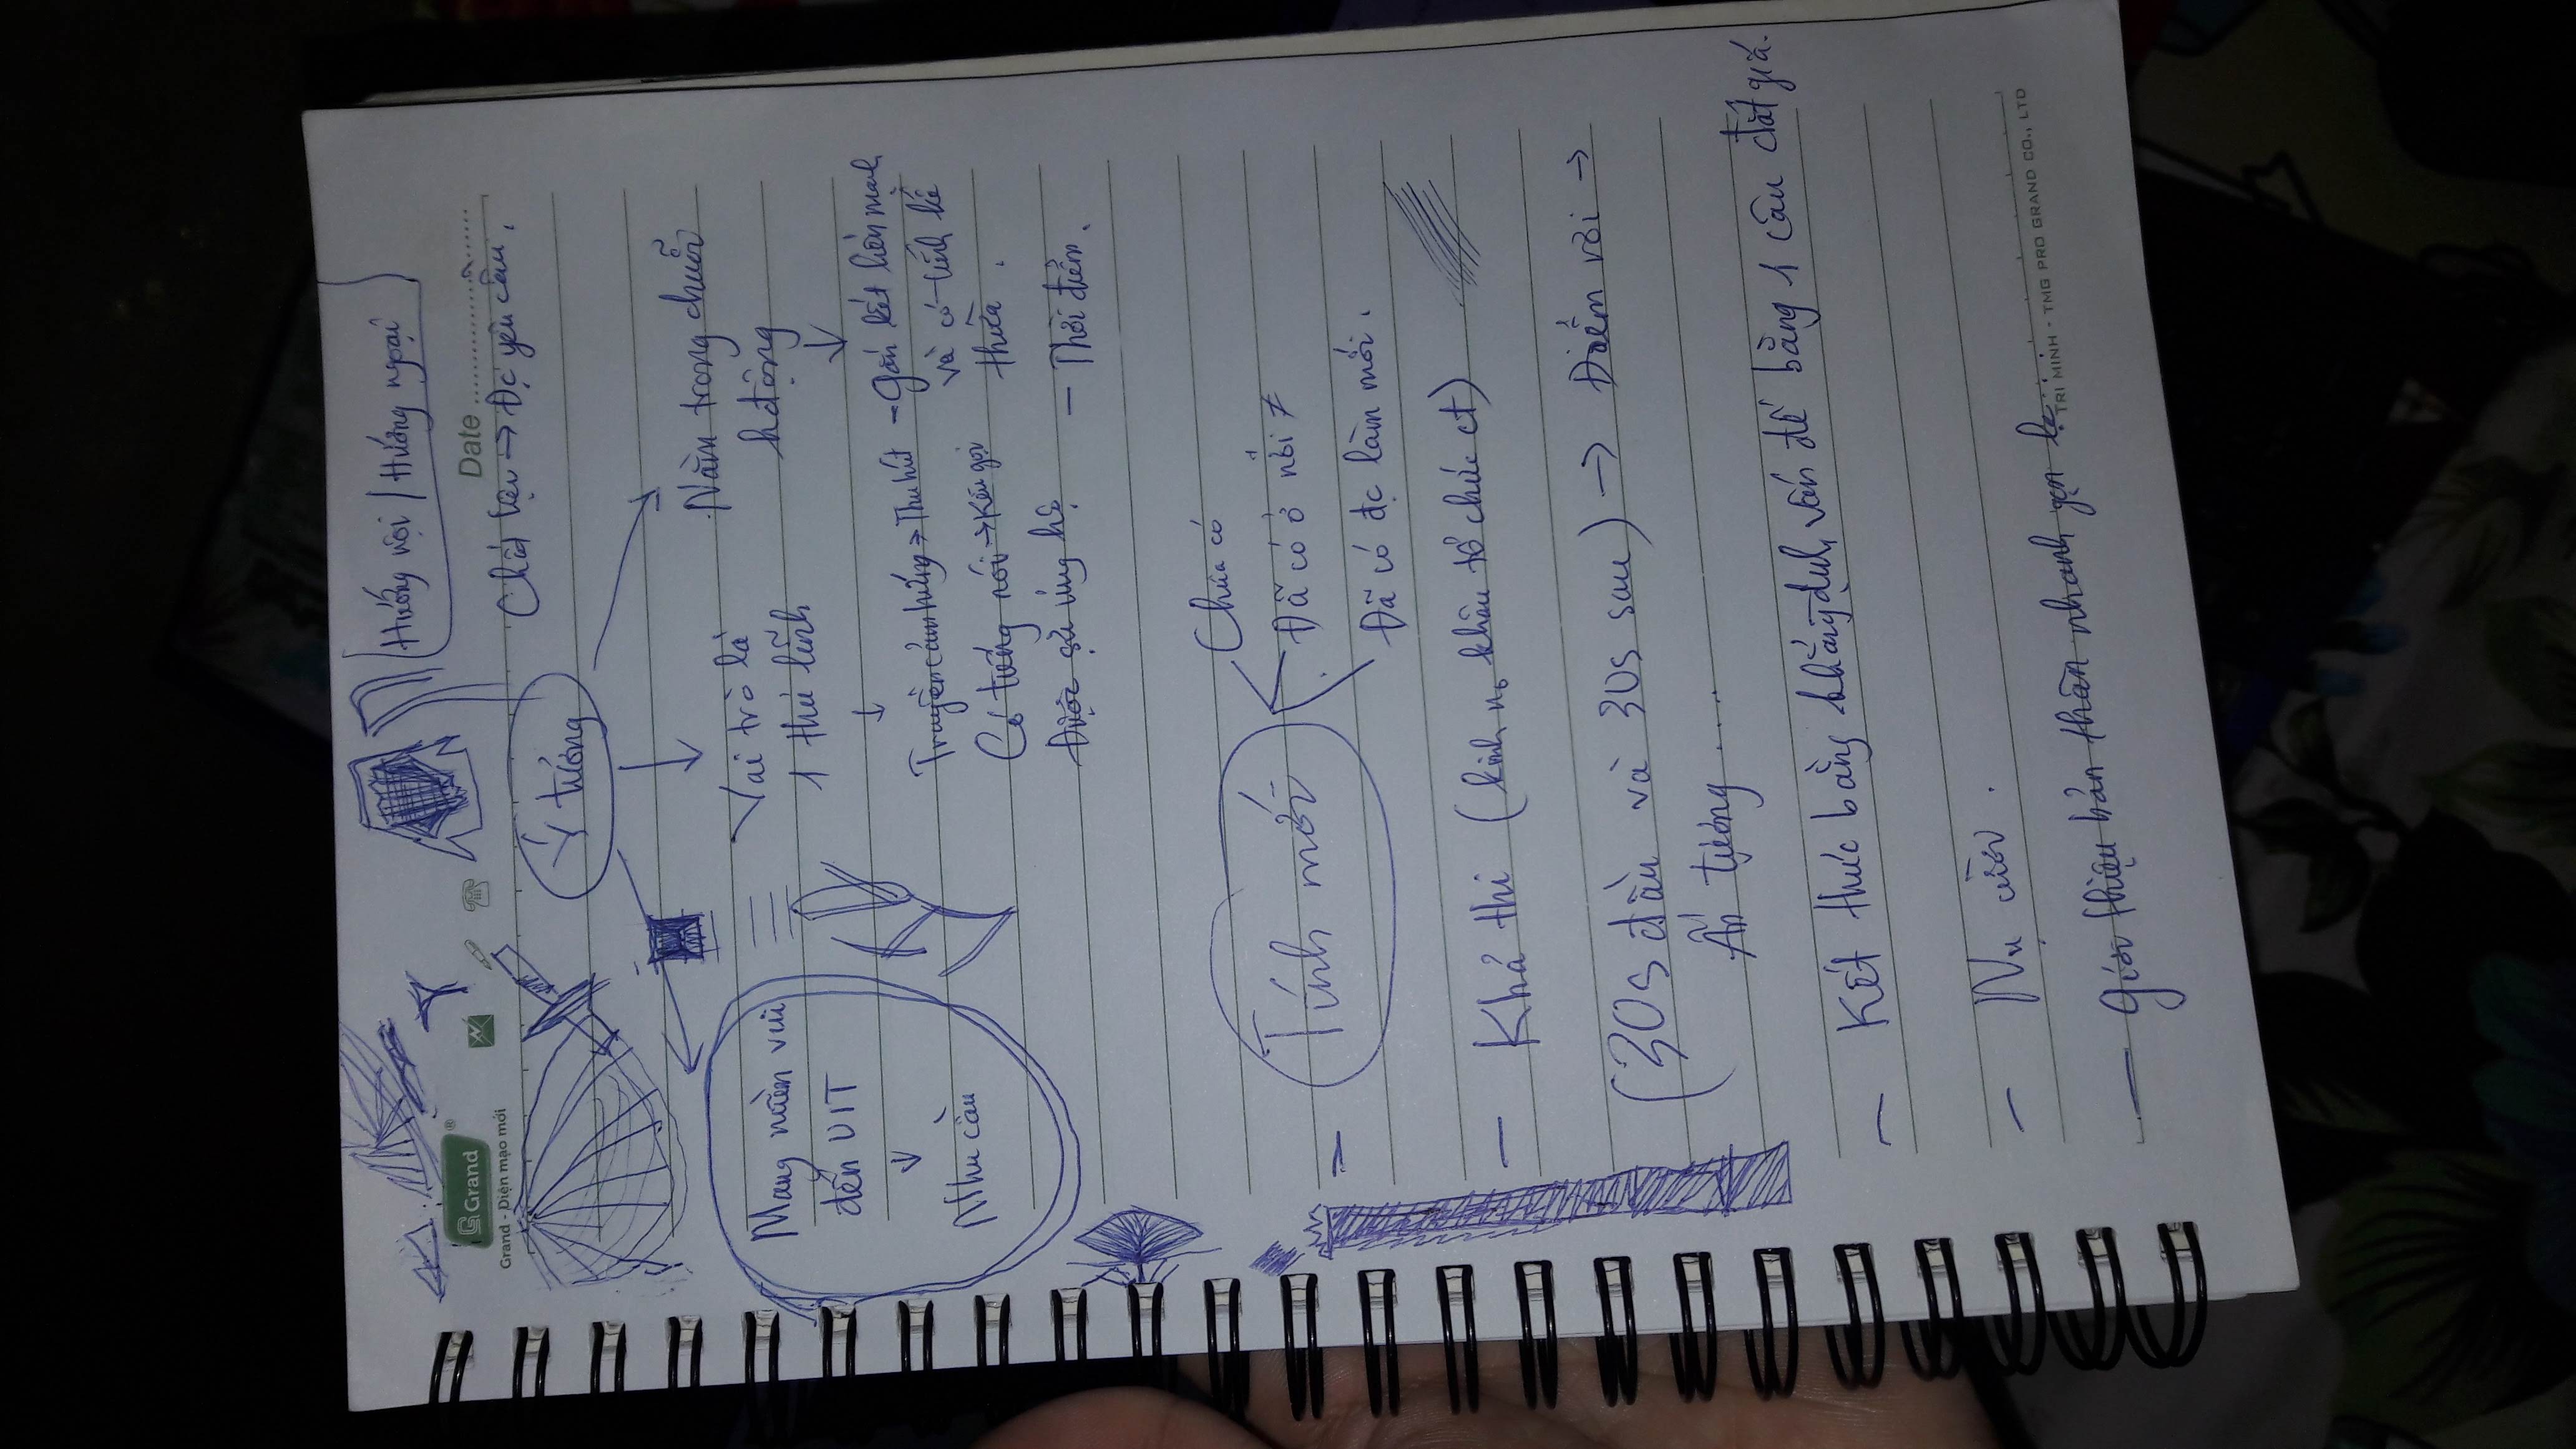 Hướng nội / Hướng ngoại
Grand®
Grand - Diện mạo mới
Date
Chất liệu → Đc yêu cầu.
Ý tưởng
Mang niềm vui
đến UIT
↓
Nhu cầu
Vai trò là
1 thủ lĩnh
↓
Truyền cảm hứng → Thu hút
Có tiếng nói → Kêu gọi
Được sự ủng hộ
Nằm trong chuỗi
hđộng
↓
- Gắn kết liền mạch
và có tính kế
thừa.
- Thời điểm.
- Tính mới
Chưa có
Đã có ở nơi ≠
Đã có đc làm mới.
- Khả thi (kinh no khâu tổ chức ct)
(30s đầu và 30s sau) → Điểm rơi →
Ấn tượng ....
- Kết thúc bằng khẳng định vấn đề bằng 1 câu đắt giá.
- Nụ cười.
- Giới thiệu bản thân nhanh gọn lẹ...
TRI MINH - TMG PRO GRAND CO., LTD